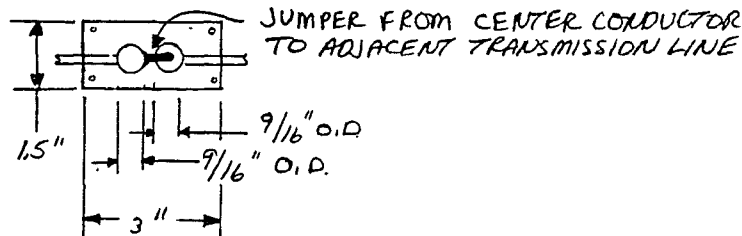 JUMPER FROM CENTER CONDUCTOR
TO ADJACENT TRANSMISSION LINE
9/16" O.D.
1.5"
9/16" O.D.
3"